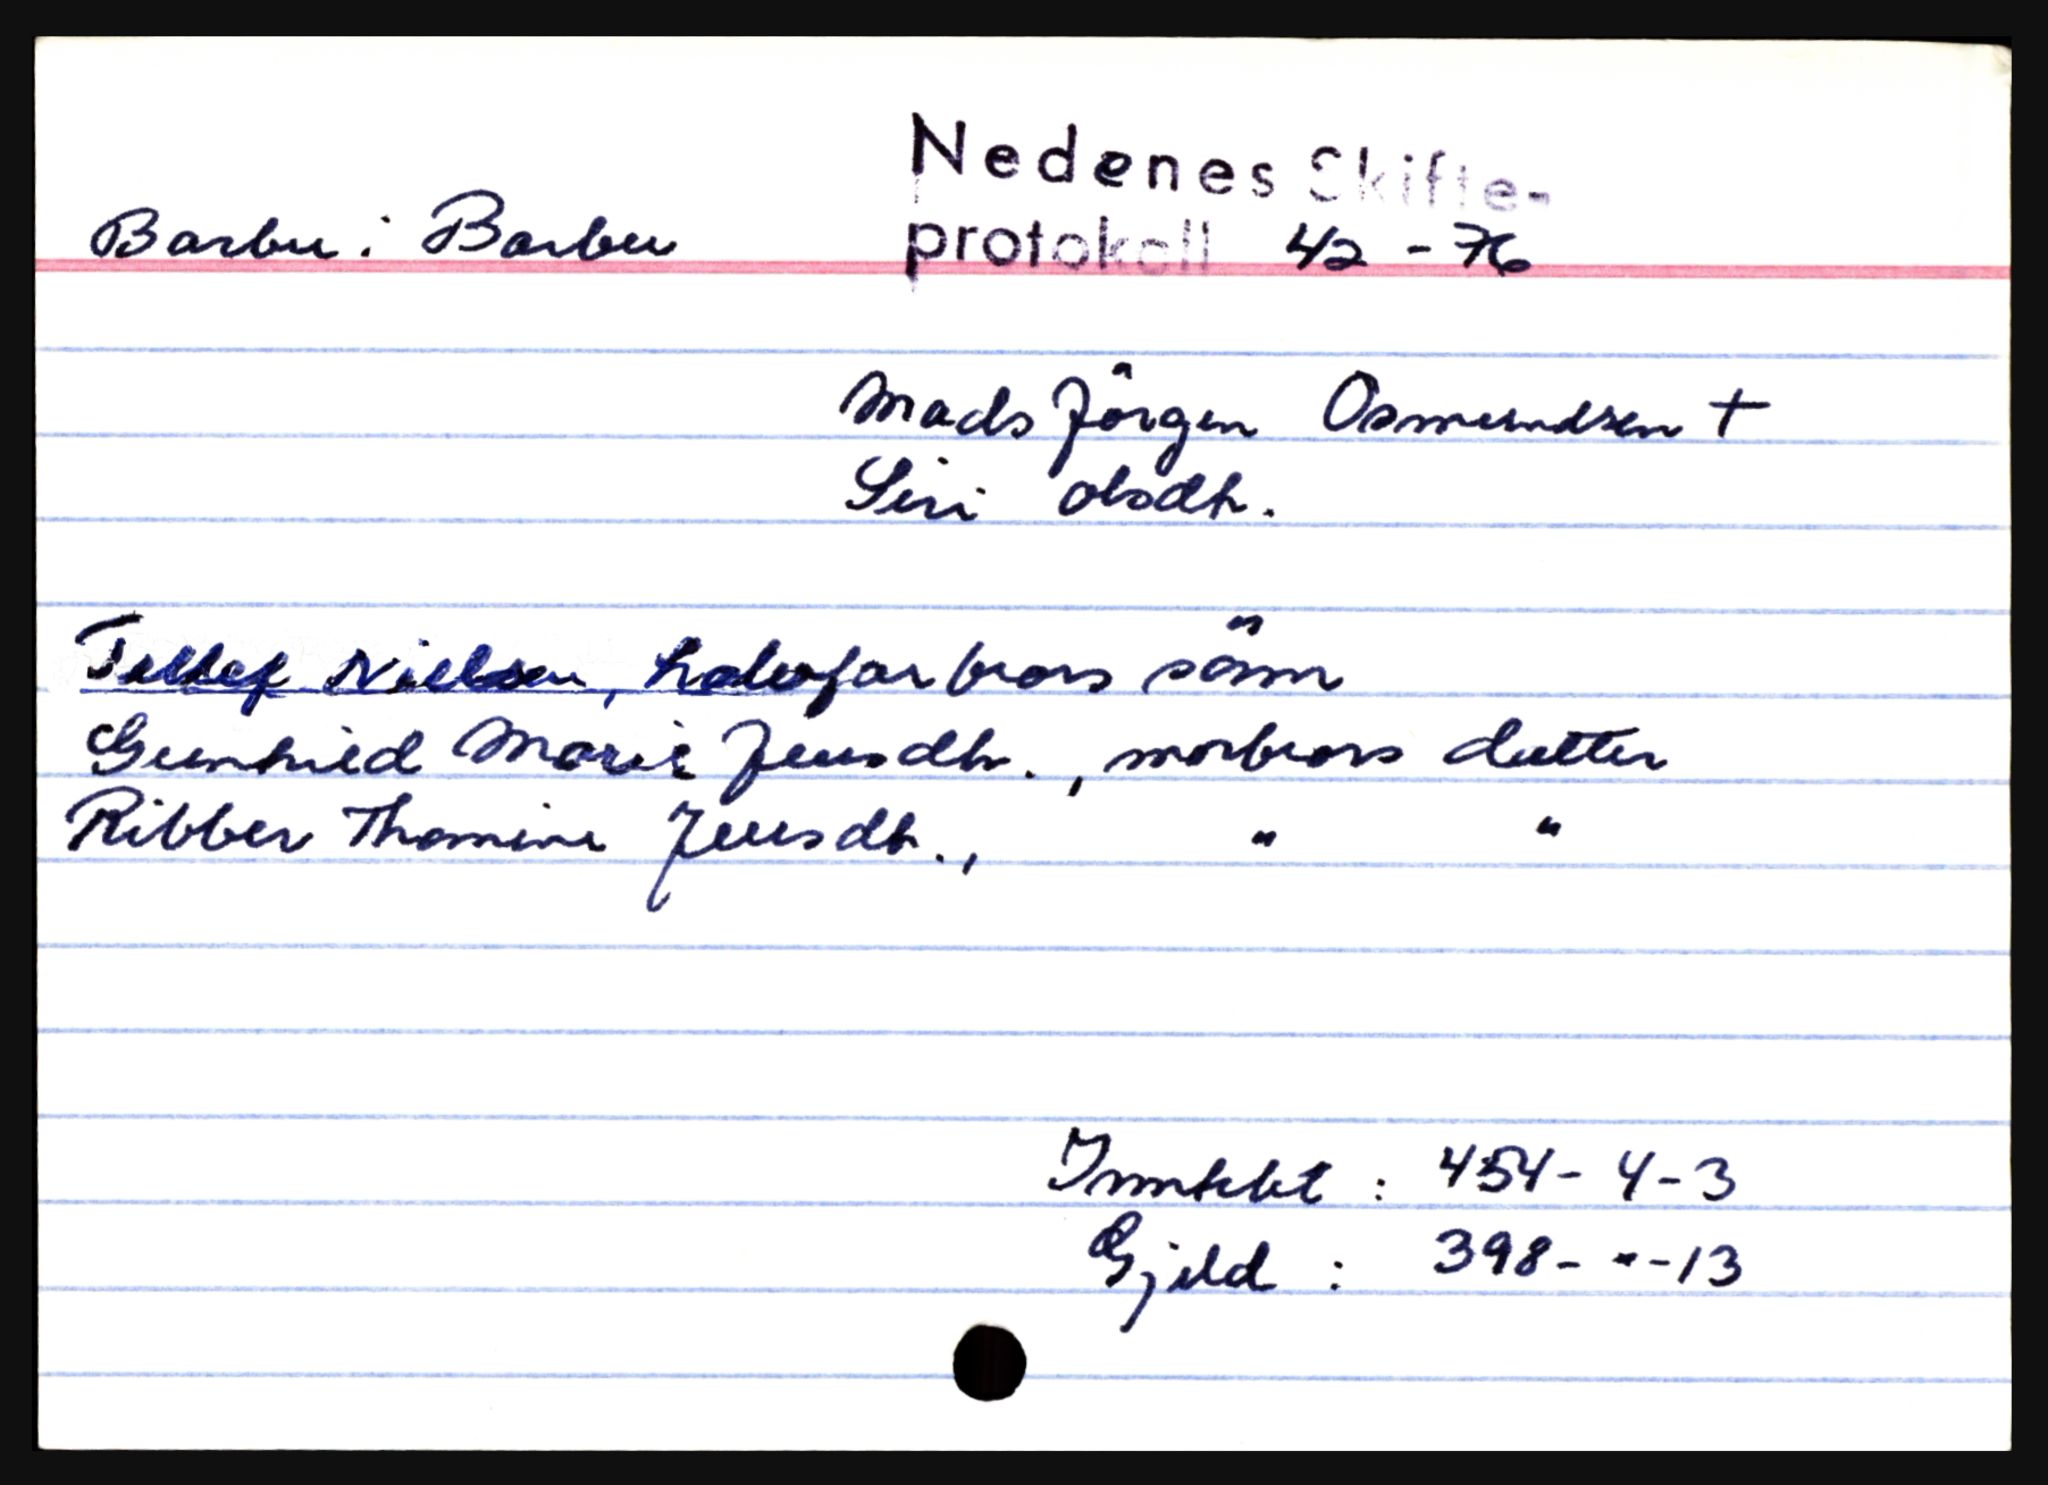 Nedenes Skifte-
Barbu : Barbu protokoll 42 - 76
Mads Jörgen Osmundsen +
Siri Olsdtr.
Tellef Nielsen, halvfarbrors sönn
Gunhild Marie Jensdtr., morbrors datter
Ribber Thomine Jensdtr., " "
Inntekt : 454 - 4 - 3
Gjeld : 398 - " - 13